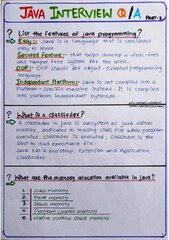 JAVA INTERVIEW Q/A
PART-1
? List the features of java programming?
Easy:- Java is a language that considered
easy to learn
Secured Feature:- that helps develop a virus-free
and tamper free system for the users.
OOP:- OOP stands for object - Oriented programming
language
Independent Platform:- Java is not compiled into a
platform - specific machine instead. It is compiled into
platform independent bytecode
? What is a classloader?
A classloader in java is subsystem of java virtual
machine, dedicated to loading class file when program
executed; classloader is executed. Classloader is the
first to load executable file.
Java has a bootstrap, Extension and Application
classloader
? What are the memory allocation available in java?
1 Class Memory
2 Heap memory
3 Stack memory
4 Program counter memory
5 Native method stack memory